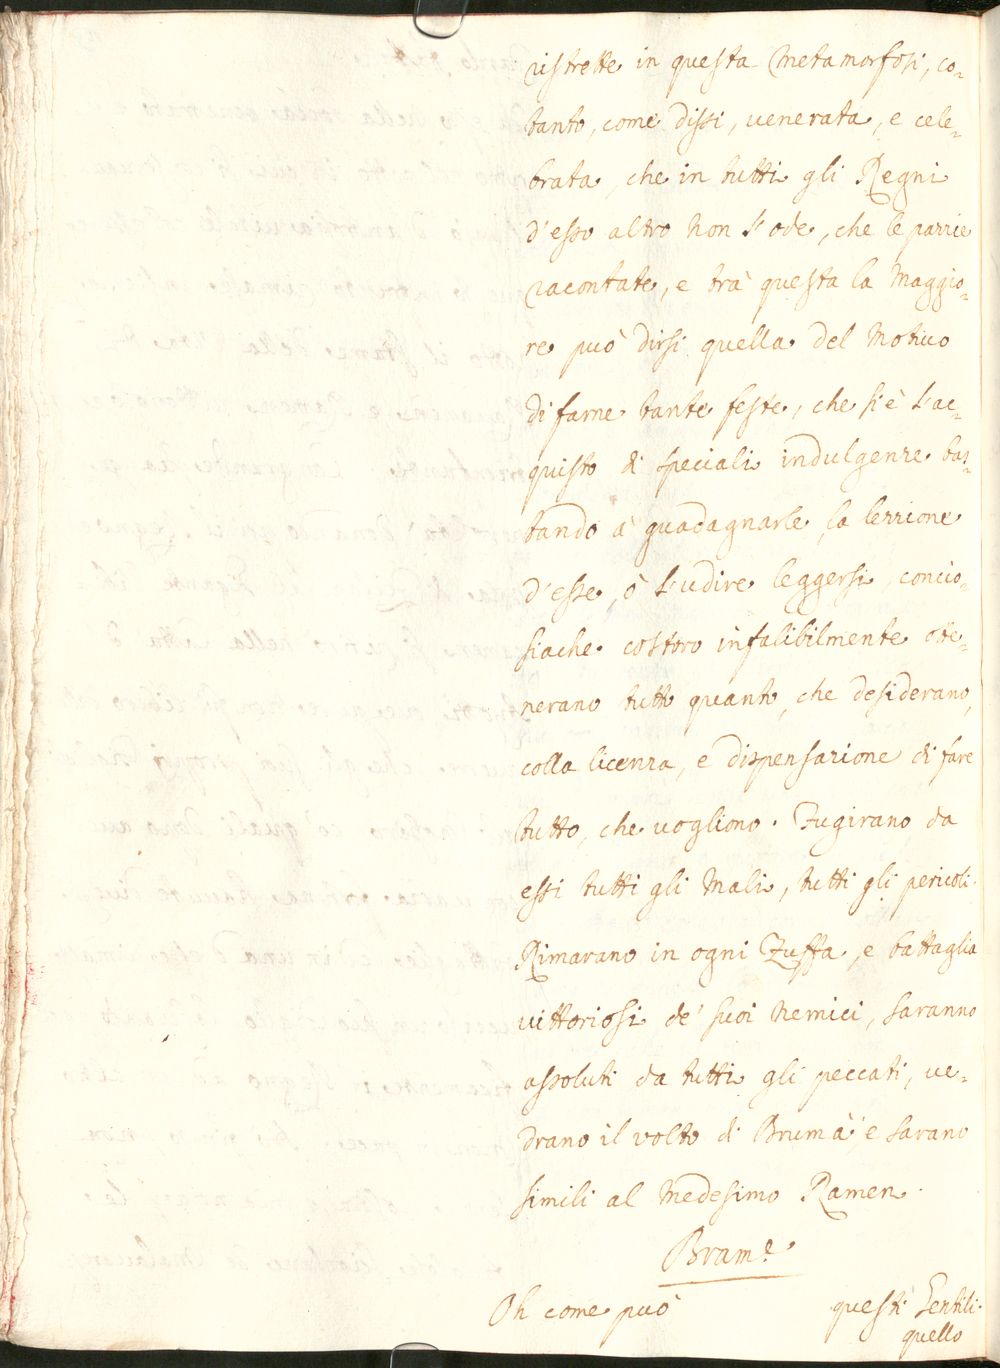 ristrette in questa metamorfosi, co-
tanto, come dissi, venerata, e cele-
brata, che in tutti gli Regni
d'esso altro non s'ode, che le pazzie
racontate, e trà questa la maggio-
re può dirsi quella del motivo
di farne tante feste, che si è l'ac-
quisto di speciali indulgenze bas-
tando a' guadagnarle, la lezzione
d'esse, ò l'udire leggersi, concio-
siache costoro infalibilmente otte-
nerano tutto quanto, che desiderano,
colla licenza, e dispensazione di fare
tutto, che vogliono. Fugirano da
essi tutti gli mali, tutti gli pericoli.
Rimarano in ogni Zuffa, e battaglia
vittoriosi de' suoi nemici, saranno
assoluti da tutti gli peccati, ve-
drano il volto di Brumà, e sarano
simili al medesimo Ramen.
Bram.e
Oh come può questi Gentili
quello